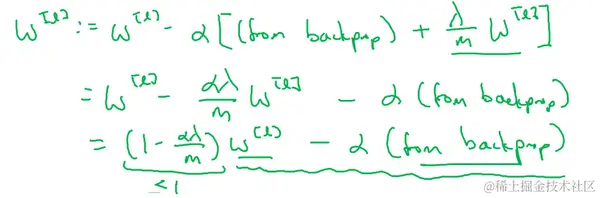 W^[l] := W^[l] - α [(from backprop) + λ/m W^[l]]
= W^[l] - αλ/m W^[l] - α (from backprop)
= (1 - αλ/m) W^[l] - α (from backprop)
< 1
@稀土掘金技术社区